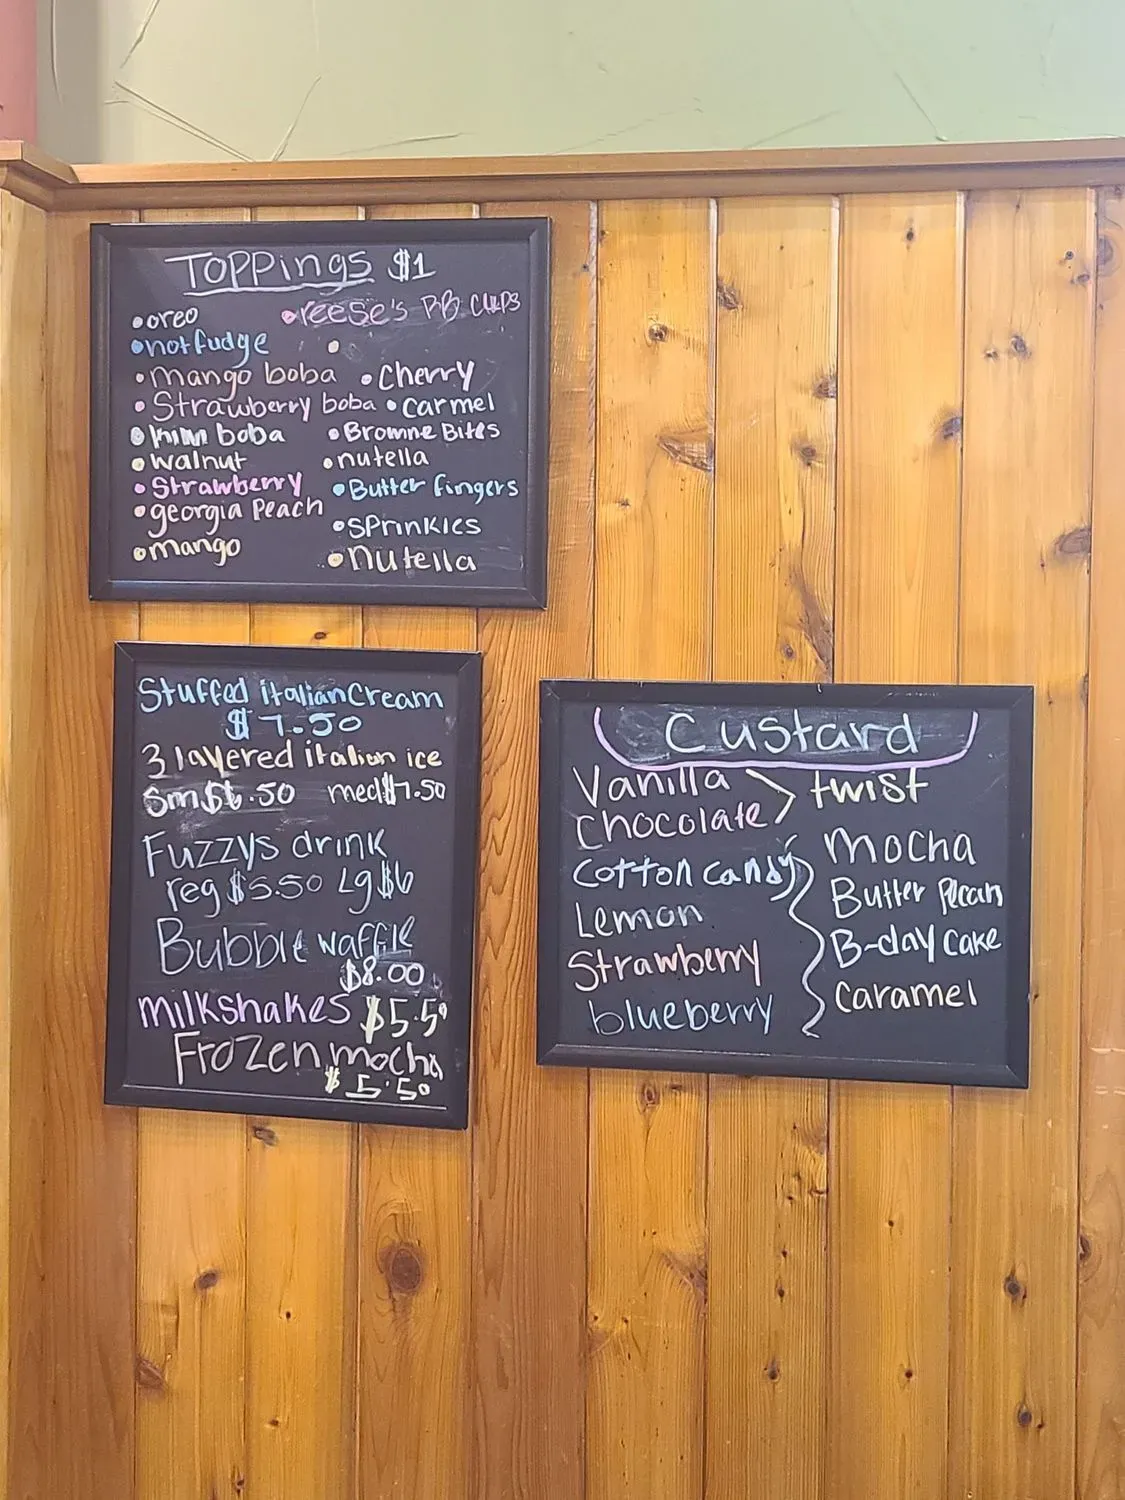 Toppings $1
•oreo
•reese's PB cups
•hot fudge
•mango boba
•Cherry
•Strawberry boba
•carmel
•kiwi boba
•Browne Bites
•walnut
•nutella
•Strawberry
•Butter fingers
•georgia Peach
•sprinkles
•mango
•nutella
Stuffed italian Cream
$7.50
3 layered italian ice
Sm $6.50 med $7.50
Fuzzys drink
reg $5.50 Lg $6
Bubble waffle
$8.00
milkshakes $5.50
Frozen mocha
$5.50
Custard
Vanilla
Chocolate
twist
Cotton candy
Lemon
Strawberry
blueberry
Mocha
Butter Pecan
B-day Cake
Caramel